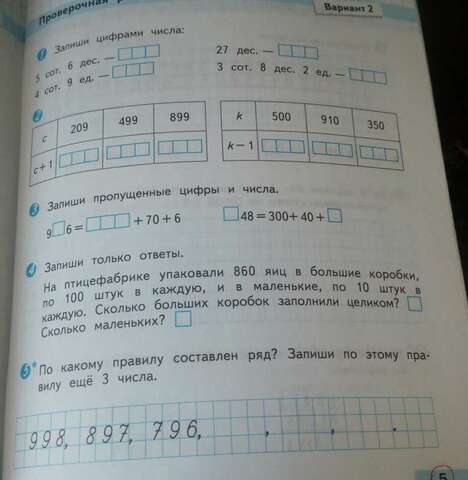 Проверочная
Вариант 2
1 Запиши цифрами числа:
5 сот. 6 дес. —
27 дес. —
4 сот. 9 ед. —
3 сот. 8 дес. 2 ед. —
2
c 209 499 899
c+1
k 500 910 350
k−1
3 Запиши пропущенные цифры и числа.
9□6=□+70+6 □48=300+40+□
4 Запиши только ответы.
На птицефабрике упаковали 860 яиц в большие коробки,
по 100 штук в каждую, и в маленькие, по 10 штук в
каждую. Сколько больших коробок заполнили целиком? □
Сколько маленьких? □
5* По какому правилу составлен ряд? Запиши по этому пра-
вилу ещё 3 числа.
998, 897, 796, , , .
5